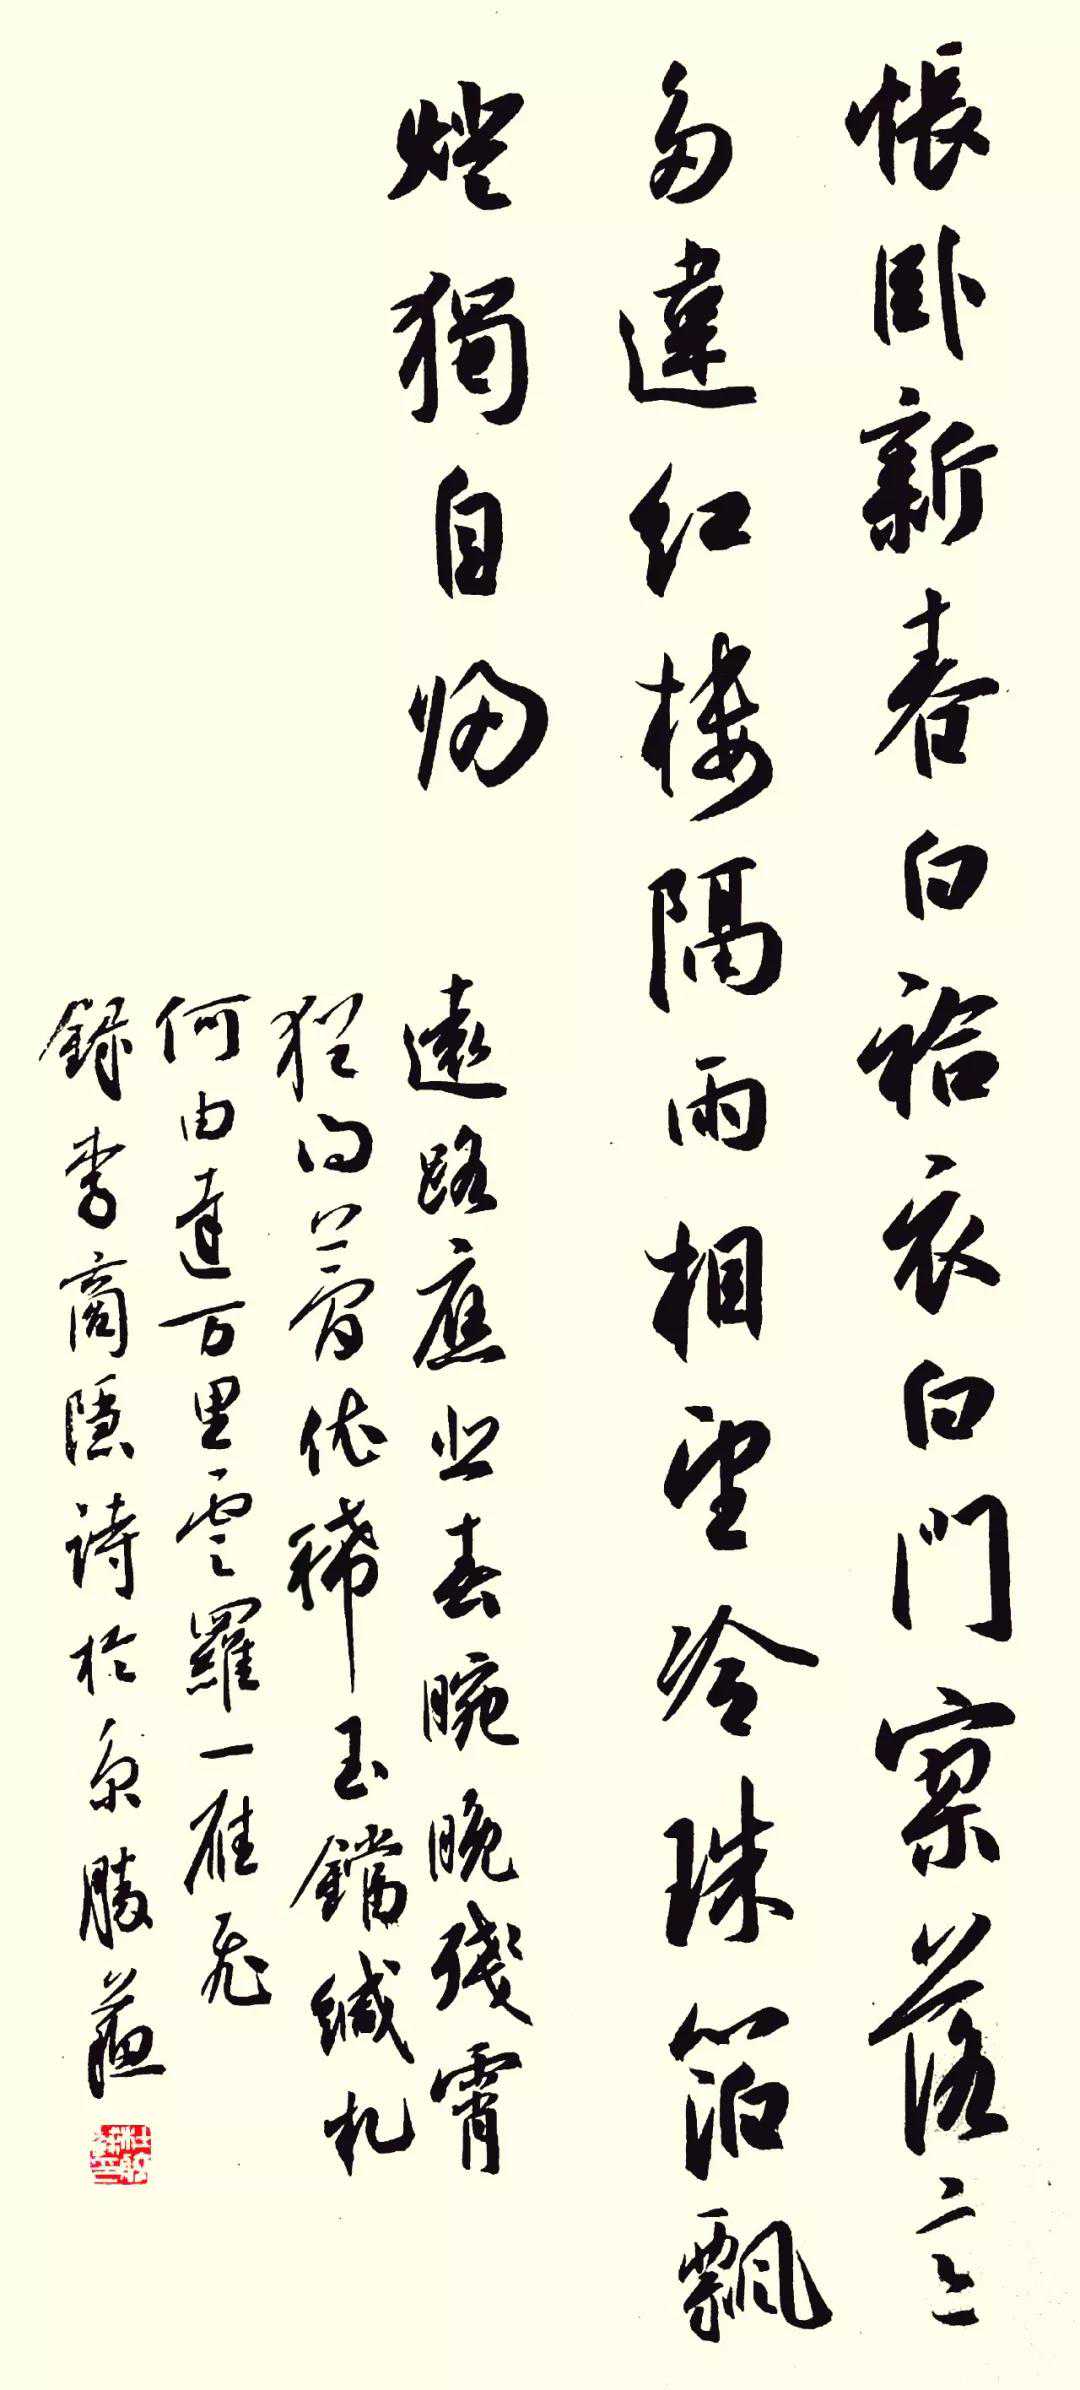 悵卧新春白袷衣白門寥落意
多違红楼隔雨相望冷珠箔飄
燈獨自歸
遠路應悲春晼晚殘霄
犹得夢依稀玉鐺緘札
何由達万里雲羅一雁飛
錄李商隱詩於京勝